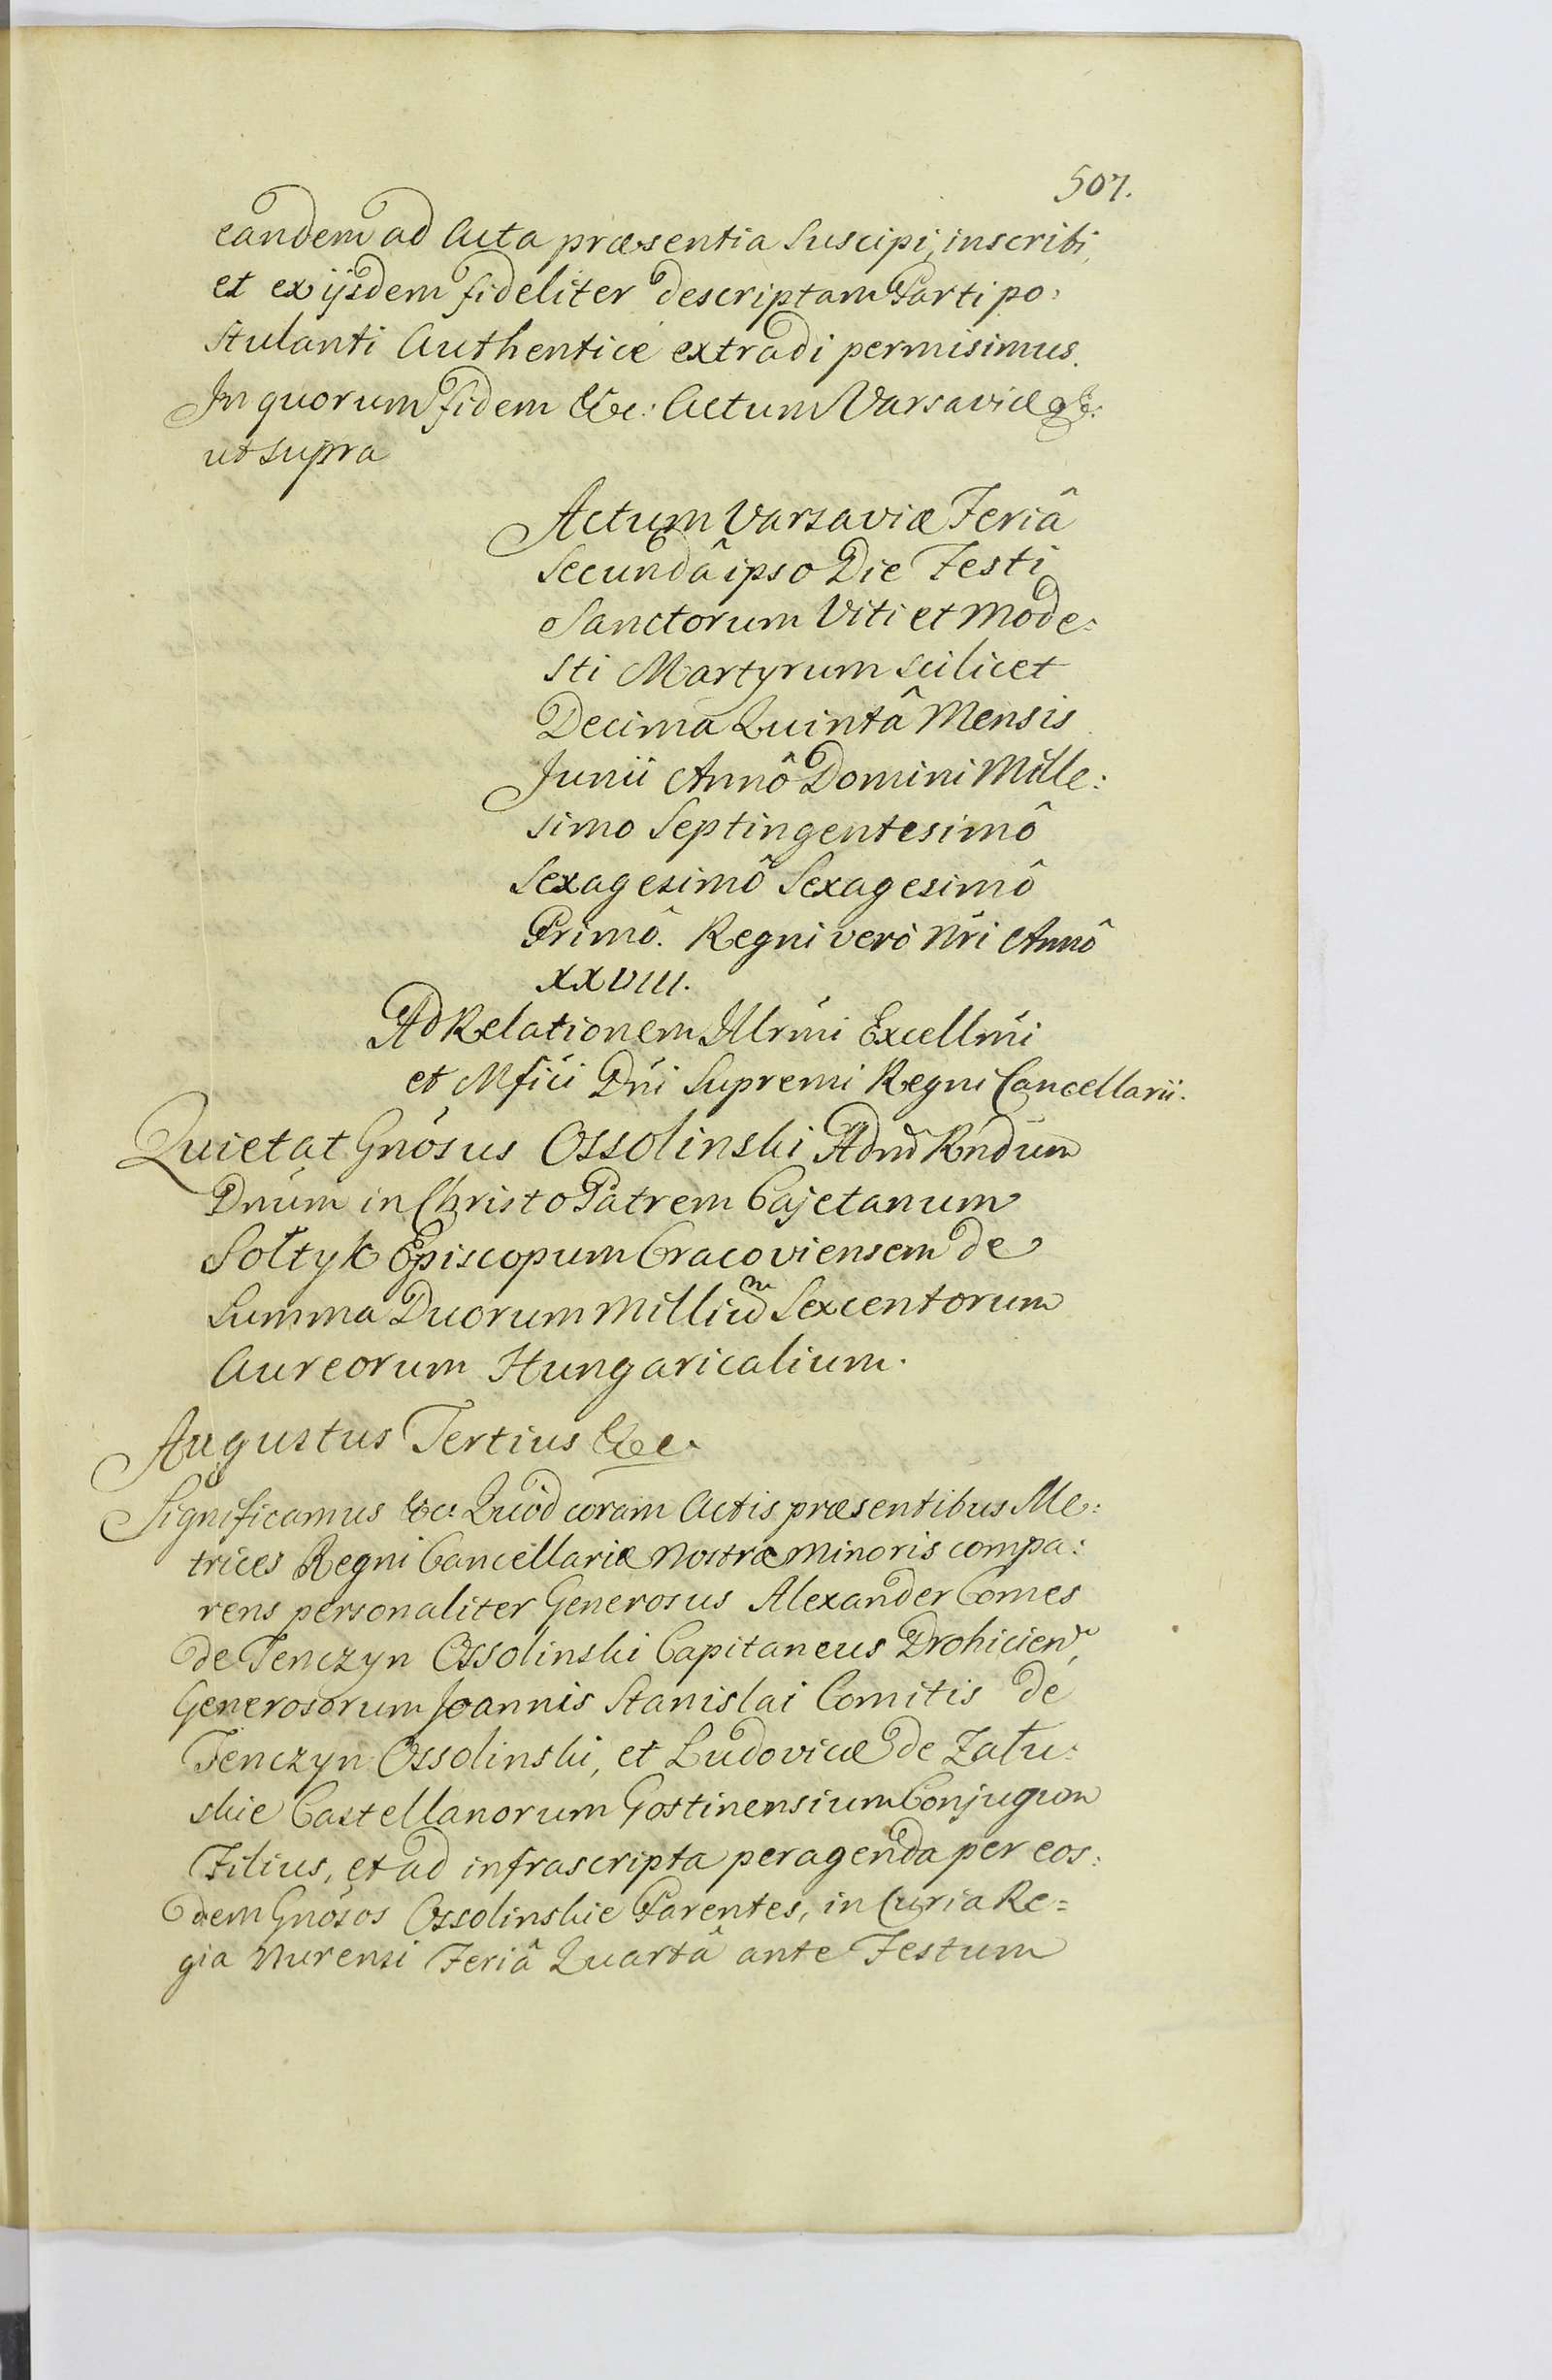 507.
eandem ad Acta præsentia suscipi, inscribi,
et ex ijsdem fideliter descriptam Parti po:
stulanti Authenticè extradi permisimus.
In quorum fidem &c: Actum Varsaviæ
ut supra
Actum Varsaviæ Feriâ
Secundâ ipso Die Festi
Sanctorum Viti et Mode:
sti Martyrum scilicet
Decima Quintâ Mensis
Junii Annô Domini Mille:
simo Septingentesimô
Sexagesimô Sexagesimô
Primô. Regni verò Nri Annô
XXVIII.
Ad Relationem Illrmi Excellmi
et Mfici Dni Supremi Regni Cancellarii.
Quietat Gnosus Ossolinski Admd Rndum
Dnum in Christo Patrem Cajetanum
Sołtyk Episcopum Cracoviensem de
Summa Duorum Millium Sexcentorum
Aureorum Hungaricalium.
Augustus Tertius &c.
Significamus &c: Quod coram Actis præsentibus Me:
trices Regni Cancellariæ Nostræ Minoris compa:
rens personaliter Generosus Alexander Comes
de Tenczyn Ossolinski Capitaneus Drohicien,
Generosorum Joannis Stanislai Comitis de
Tenczyn Ossolinski, et Ludovicæ de Zału:
skie Castellanorum Gostinensium Conjugum
Filius, et ad infrascripta peragenda per eos:
dem Gnosos Ossolinskie Parentes, in Curia Re=
gia Nurensi Feriâ Quartâ ante Festum